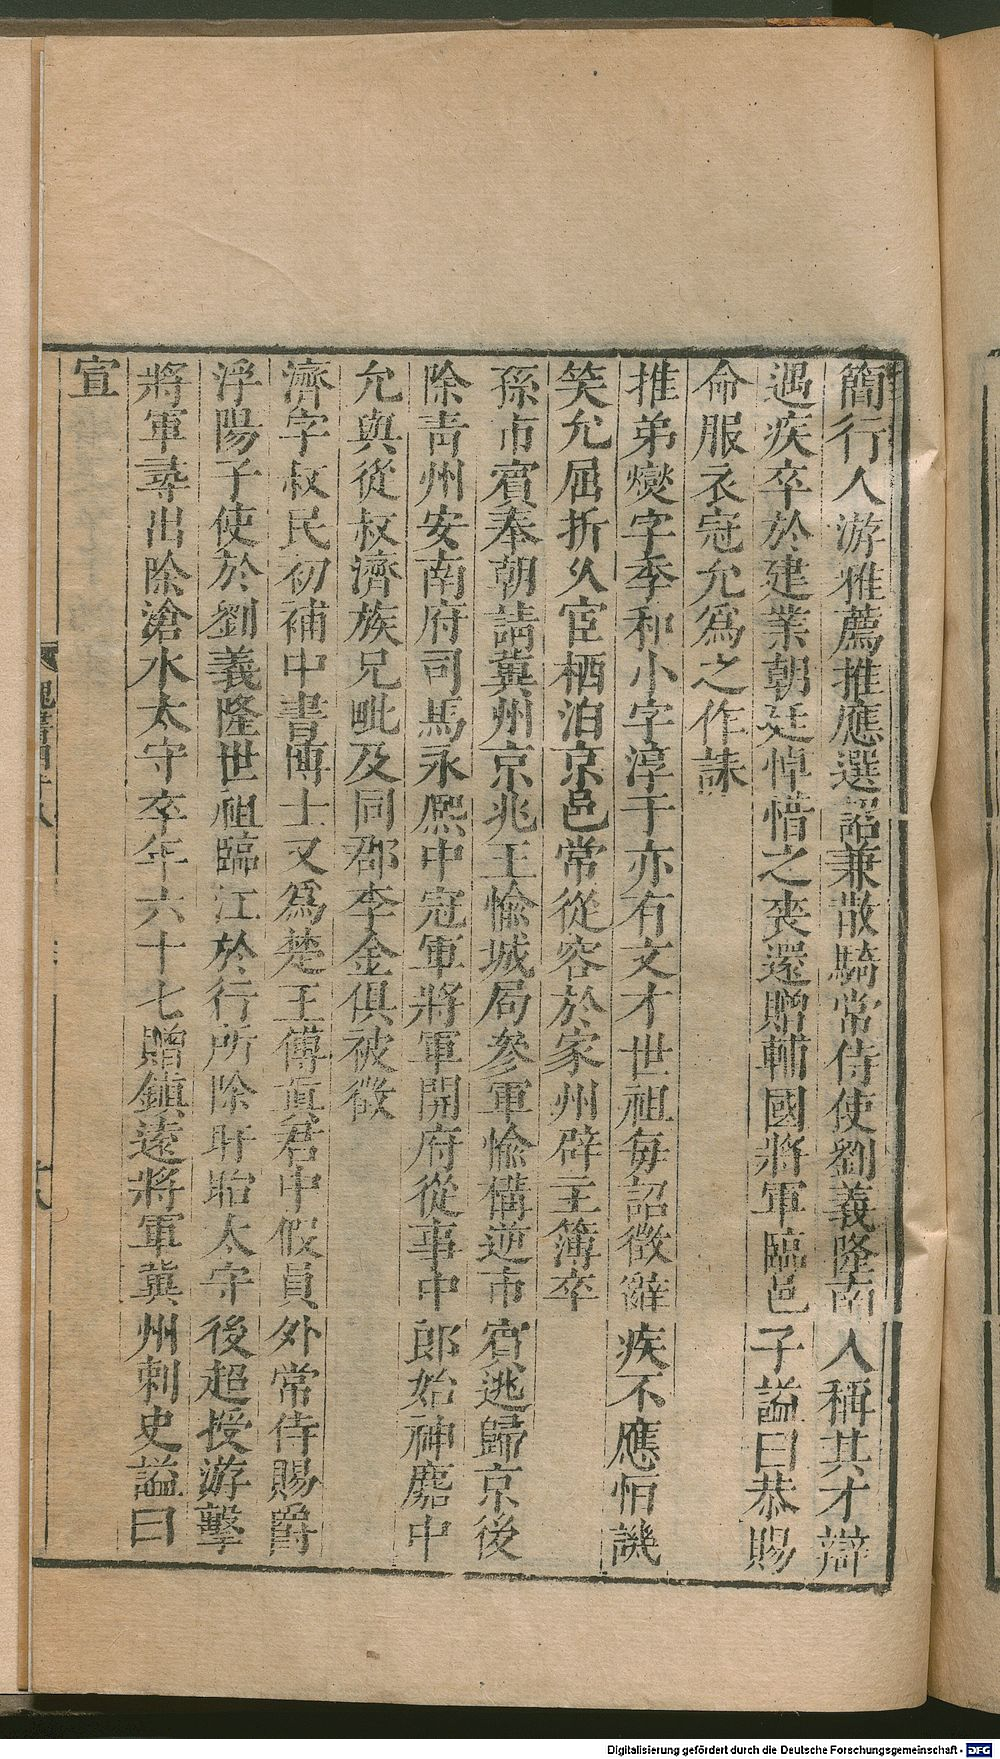 簡行人游雅薦推應選詔兼散騎常侍使劉義隆南人稱其才辯
遇疾卒於建業朝廷悼惜之喪還贈輔國將軍臨邑子謚曰恭賜
命服衣冠允爲之作誄
推弟爕字季和小字淳于亦有文才世祖每詔徵辭疾不應恒譏
笑允屈折久宦栖泊京邑常從容於家州辟主簿卒
孫市賓奉朝請冀州京兆王愉城局參軍愉構逆市賓逃歸京後
除青州安南府司馬永熙中冠軍將軍開府從事中郎始神䴥中
允與從叔濟族兄毗及同郡李金俱被徵
濟字叔民初補中書博士又爲楚王傅眞君中假員外常侍賜爵
浮陽子使於劉義隆世祖臨江於行所除盱眙太守後超授游擊
將軍尋出除滄水太守卒年六十七贈鎮遠將軍冀州刺史謚曰
宣
魏書四十八
十八
Digitalisierung gefördert durch die Deutsche Forschungsgemeinschaft - DFG